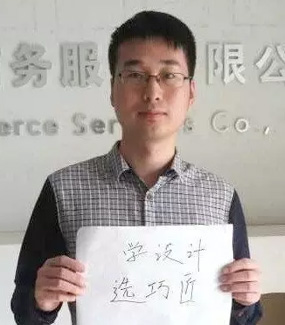 务服
限公
erce Ser
Co.,
学设计
选巧匠